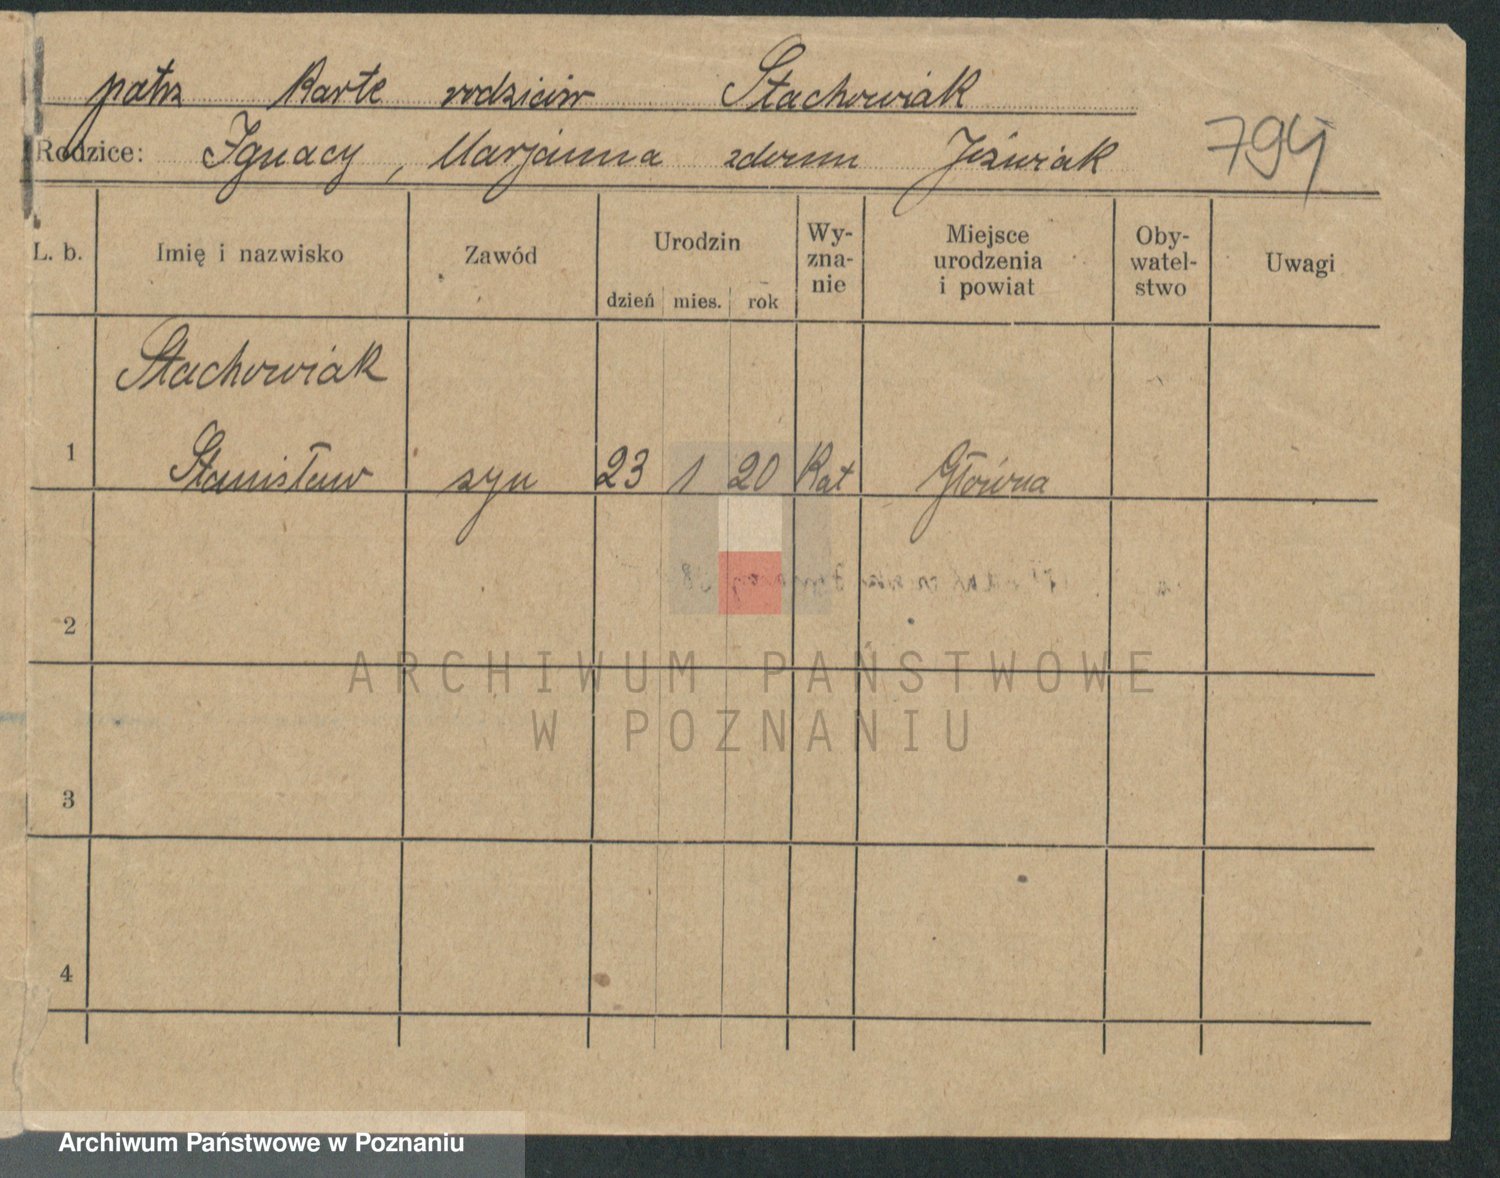 patrz Karte rodziców Stachowiak
Rodzice: Ignacy, Marjanna z domu Jóźwiak
794
L. b. Imię i nazwisko Zawód Urodzin dzień mies. rok Wy-zna-nie Miejsce urodzenia i powiat Oby-watel-stwo Uwagi
Stachowiak
1 Stanisław syn 23 1 20 Kat Główna
2
3
4
ARCHIWUM PAŃSTWOWE
W POZNANIU
Archiwum Państwowe w Poznaniu